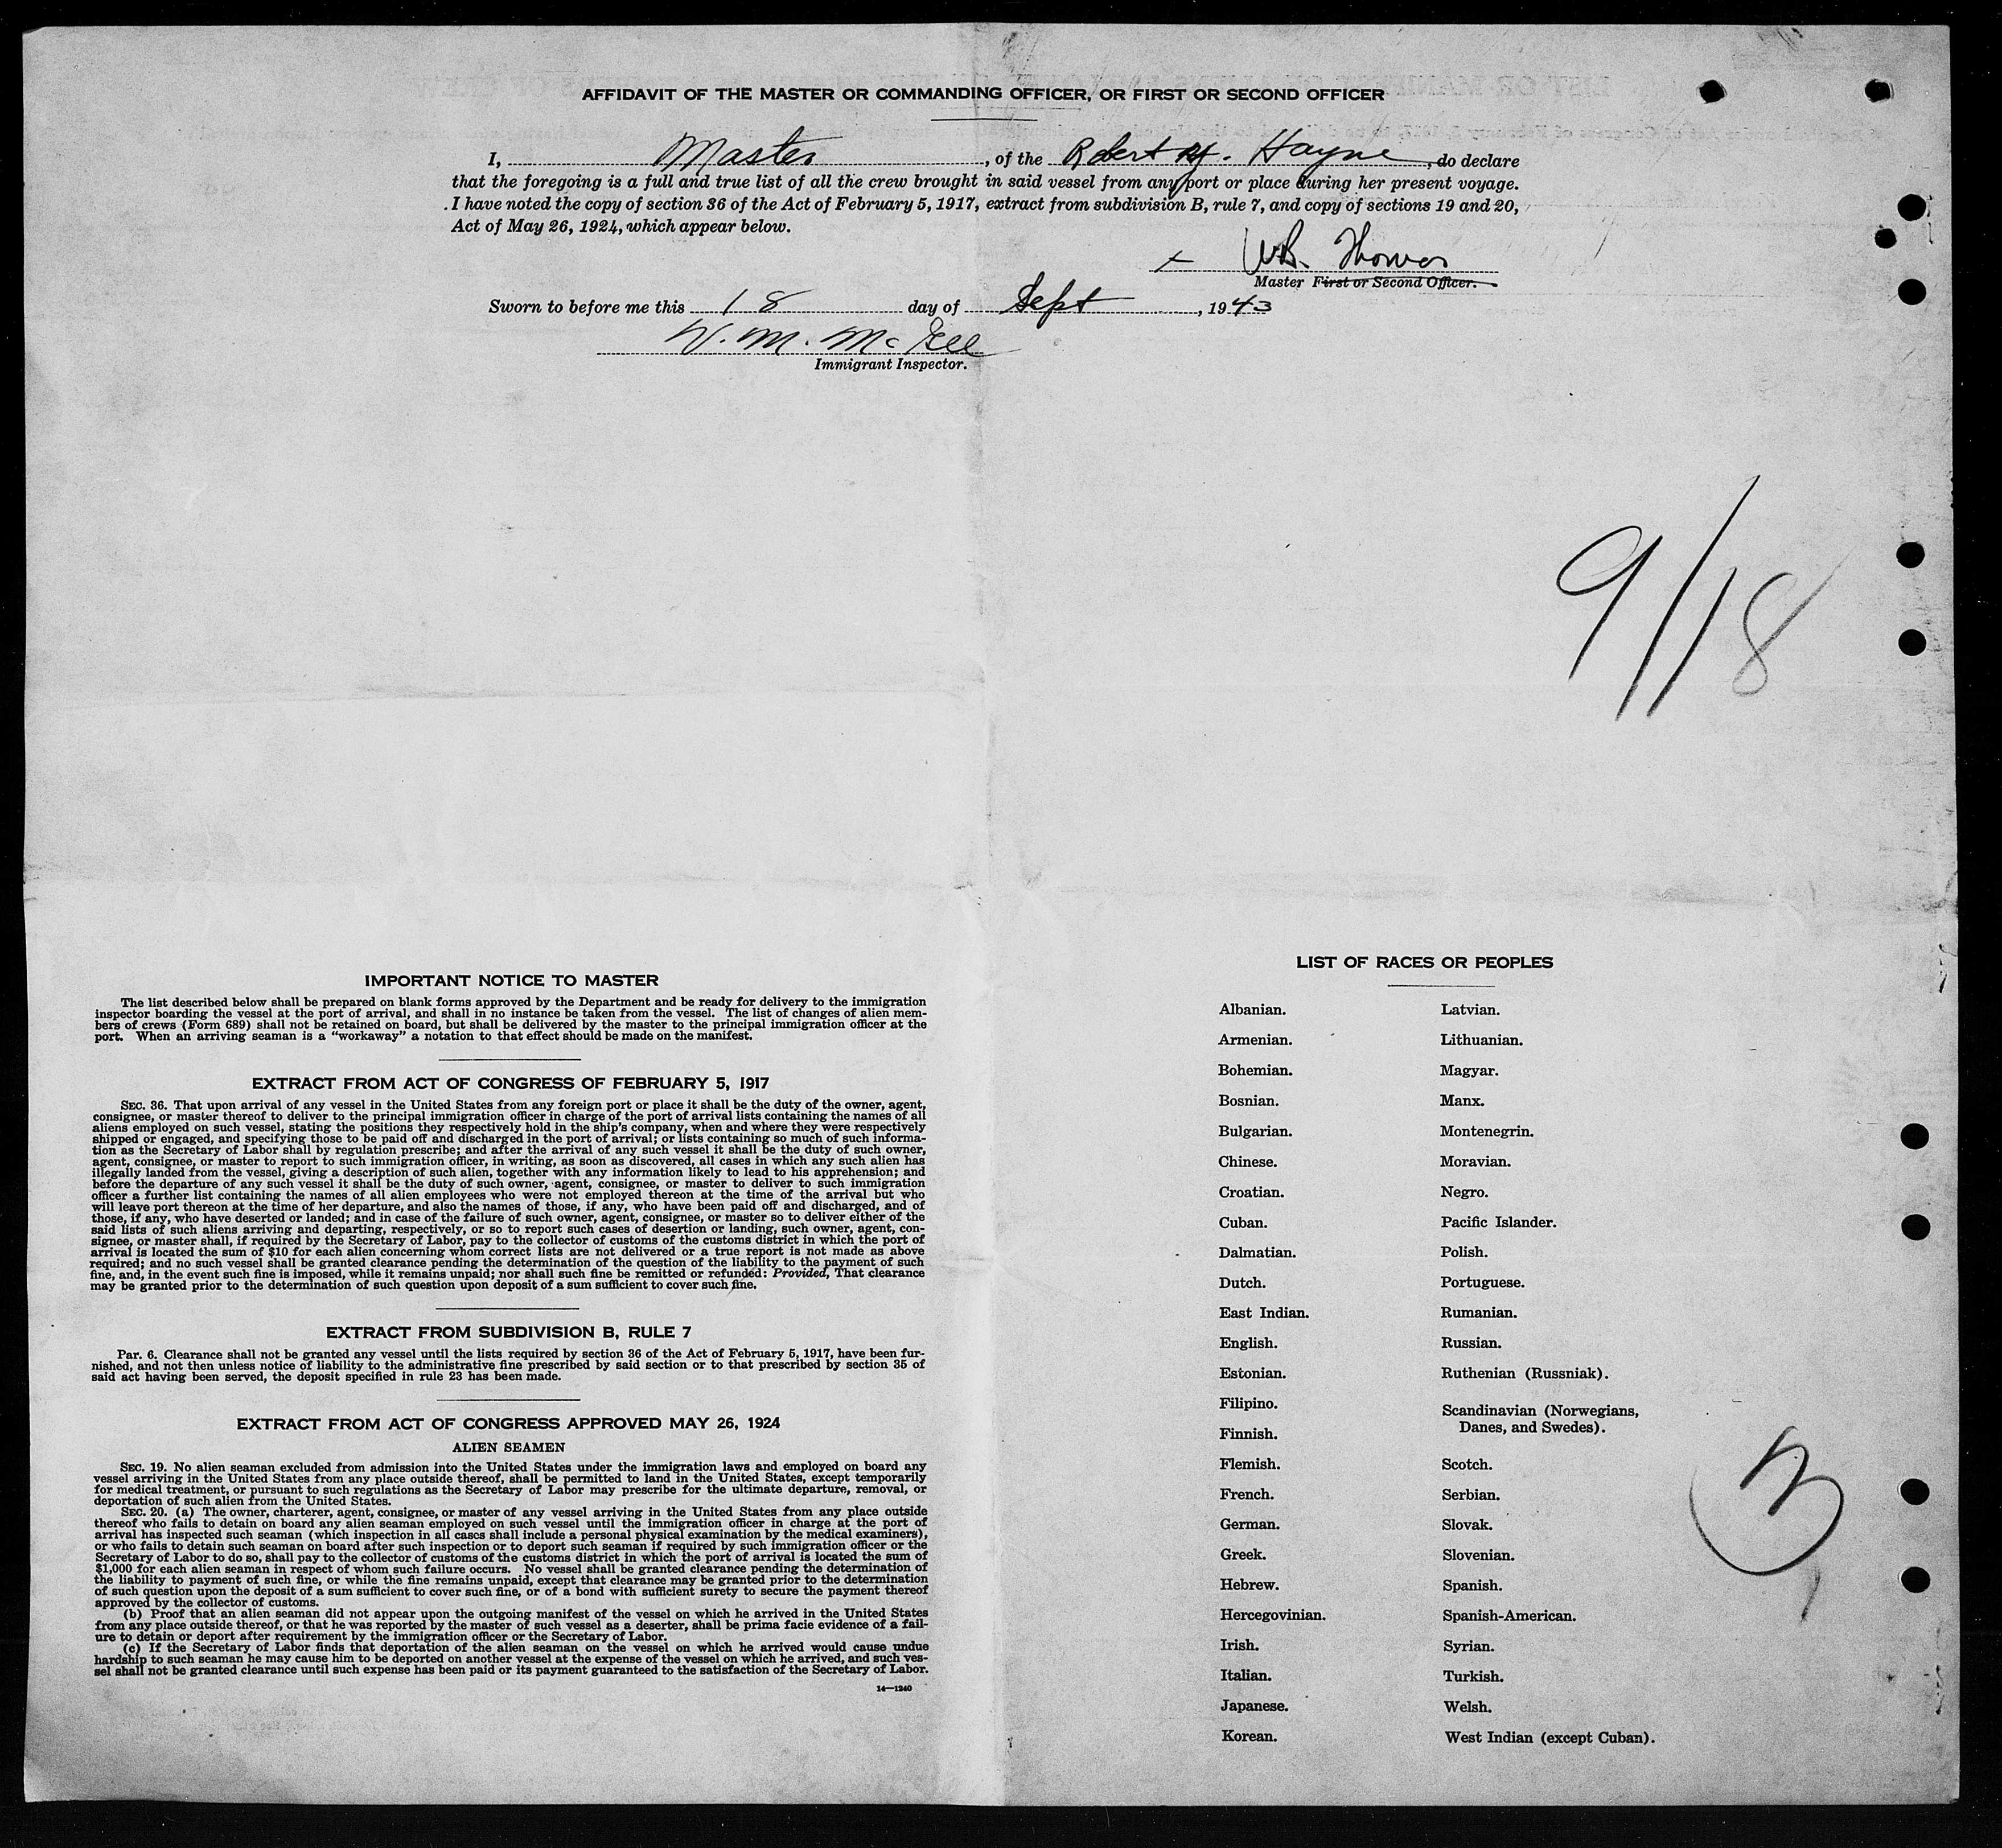 AFFIDAVIT OF THE MASTER OR COMMANDING OFFICER, OR FIRST OR SECOND OFFICER
I, Master, of the Robert Y. Hayne, do declare
that the foregoing is a full and true list of all the crew brought in said vessel from any port or place during her present voyage.
I have noted the copy of section 36 of the Act of February 5, 1917, extract from subdivision B, rule 7, and copy of sections 19 and 20,
Act of May 26, 1924, which appear below.
x W.B. Thomas
Master First or Second Officer.
Sworn to before me this 18 day of Sept, 1943
W. M. McGee
Immigrant Inspector.
9/18
IMPORTANT NOTICE TO MASTER
The list described below shall be prepared on blank forms approved by the Department and be ready for delivery to the immigration
inspector boarding the vessel at the port of arrival, and shall in no instance be taken from the vessel. The list of changes of alien mem-
bers of crews (Form 689) shall not be retained on board, but shall be delivered by the master to the principal immigration officer at the
port. When an arriving seaman is a "workaway" a notation to that effect should be made on the manifest.
EXTRACT FROM ACT OF CONGRESS OF FEBRUARY 5, 1917
SEC. 36. That upon arrival of any vessel in the United States from any foreign port or place it shall be the duty of the owner, agent,
consignee, or master thereof to deliver to the principal immigration officer in charge of the port of arrival lists containing the names of all
aliens employed on such vessel, stating the positions they respectively hold in the ship's company, when and where they were respectively
shipped or engaged, and specifying those to be paid off and discharged in the port of arrival; or lists containing so much of such informa-
tion as the Secretary of Labor shall by regulation prescribe; and after the arrival of any such vessel it shall be the duty of such owner,
agent, consignee, or master to report to such immigration officer, in writing, as soon as discovered, all cases in which any such alien has
illegally landed from the vessel, giving a description of such alien, together with any information likely to lead to his apprehension; and
before the departure of any such vessel it shall be the duty of such owner, agent, consignee, or master to deliver to such immigration
officer a further list containing the names of all alien employees who were not employed thereon at the time of the arrival but who
will leave port thereon at the time of her departure, and also the names of those, if any, who have been paid off and discharged, and of
those, if any, who have deserted or landed; and in case of the failure of such owner, agent, consignee, or master so to deliver either of the
said lists of such aliens arriving and departing, respectively, or so to report such cases of desertion or landing, such owner, agent, con-
signee, or master shall, if required by the Secretary of Labor, pay to the collector of customs of the customs district in which the port of
arrival is located the sum of $10 for each alien concerning whom correct lists are not delivered or a true report is not made as above
required; and no such vessel shall be granted clearance pending the determination of the question of the liability to the payment of such
fine, and, in the event such fine is imposed, while it remains unpaid; nor shall such fine be remitted or refunded: Provided, That clearance
may be granted prior to the determination of such question upon deposit of a sum sufficient to cover such fine.
EXTRACT FROM SUBDIVISION B, RULE 7
Par. 6. Clearance shall not be granted any vessel until the lists required by section 36 of the Act of February 5, 1917, have been fur-
nished, and not then unless notice of liability to the administrative fine prescribed by said section or to that prescribed by section 35 of
said act having been served, the deposit specified in rule 23 has been made.
EXTRACT FROM ACT OF CONGRESS APPROVED MAY 26, 1924
ALIEN SEAMEN
SEC. 19. No alien seaman excluded from admission into the United States under the immigration laws and employed on board any
vessel arriving in the United States from any place outside thereof, shall be permitted to land in the United States, except temporarily
for medical treatment, or pursuant to such regulations as the Secretary of Labor may prescribe for the ultimate departure, removal, or
deportation of such alien from the United States.
SEC. 20. (a) The owner, charterer, agent, consignee, or master of any vessel arriving in the United States from any place outside
thereof who fails to detain on board any alien seaman employed on such vessel until the immigration officer in charge at the port of
arrival has inspected such seaman (which inspection in all cases shall include a personal physical examination by the medical examiners),
or who fails to detain such seaman on board after such inspection or to deport such seaman if required by such immigration officer or the
Secretary of Labor to do so, shall pay to the collector of customs of the customs district in which the port of arrival is located the sum of
$1,000 for each alien seaman in respect of whom such failure occurs. No vessel shall be granted clearance pending the determination of
the liability to payment of such fine, or while the fine remains unpaid, except that clearance may be granted prior to the determination
of such question upon the deposit of a sum sufficient to cover such fine, or of a bond with sufficient surety to secure the payment thereof
approved by the collector of customs.
(b) Proof that an alien seaman did not appear upon the outgoing manifest of the vessel on which he arrived in the United States
from any place outside thereof, or that he was reported by the master of such vessel as a deserter, shall be prima facie evidence of a fail-
ure to detain or deport after requirement by the immigration officer or the Secretary of Labor.
(c) If the Secretary of Labor finds that deportation of the alien seaman on the vessel on which he arrived would cause undue
hardship to such seaman he may cause him to be deported on another vessel at the expense of the vessel on which he arrived, and such ves-
sel shall not be granted clearance until such expense has been paid or its payment guaranteed to the satisfaction of the Secretary of Labor.
14—1240
LIST OF RACES OR PEOPLES
Albanian.
Armenian.
Bohemian.
Bosnian.
Bulgarian.
Chinese.
Croatian.
Cuban.
Dalmatian.
Dutch.
East Indian.
English.
Estonian.
Filipino.
Finnish.
Flemish.
French.
German.
Greek.
Hebrew.
Hercegovinian.
Irish.
Italian.
Japanese.
Korean.
Latvian.
Lithuanian.
Magyar.
Manx.
Montenegrin.
Moravian.
Negro.
Pacific Islander.
Polish.
Portuguese.
Rumanian.
Russian.
Ruthenian (Russniak).
Scandinavian (Norwegians,
Danes, and Swedes).
Scotch.
Serbian.
Slovak.
Slovenian.
Spanish.
Spanish-American.
Syrian.
Turkish.
Welsh.
West Indian (except Cuban).
3